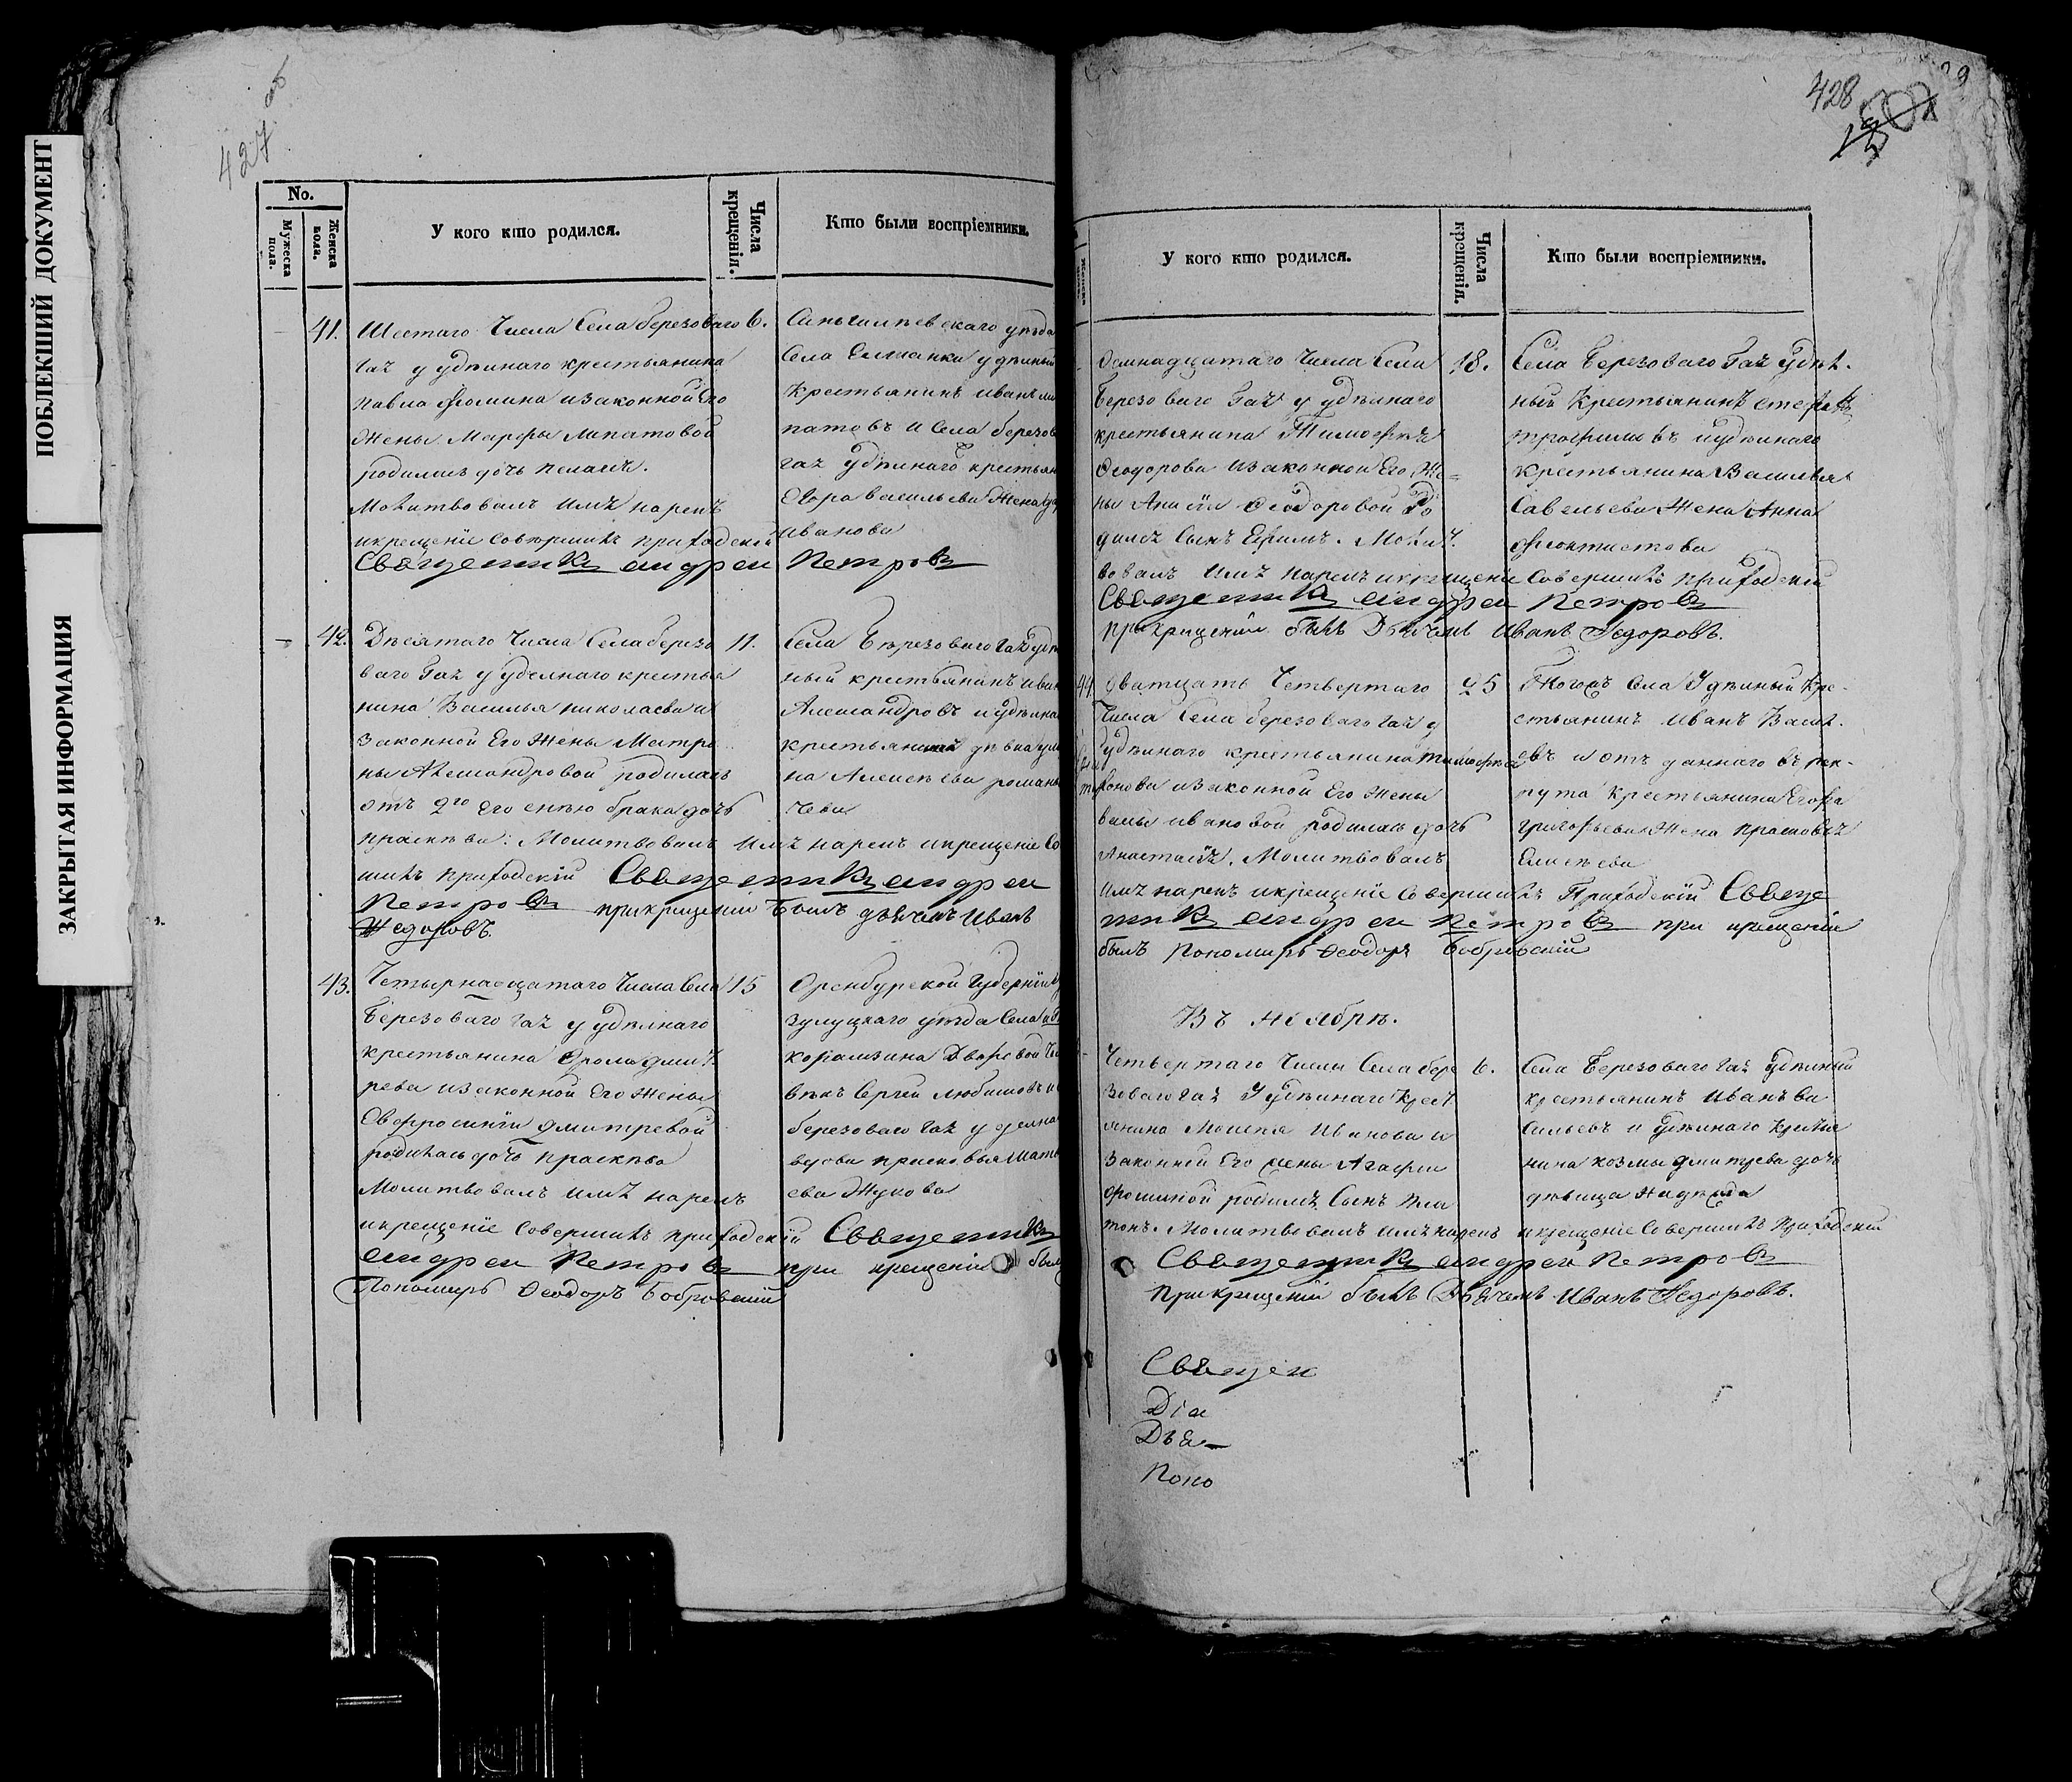 ПОБЛЕКШИЙ ДОКУМЕНТ
ЗАКРЫТАЯ ИНФОРМАЦИЯ
427 об
No.
Мужеска пола.
Женска пола.
У кого кто родился.
Числа крещенія.
Кто были воспріемники.
41. Шестаго Числа Села березоваго 6.
Гая у удѣлнаго крестьянина
Павла Фомина и законной Его
Жены Марфы Липатовой
родилась дочь Пелагея.
Молитвовалъ имя нарекъ
и крещеніе Совершилъ приходскій
Священникъ Андрей Петровъ
Сингилѣевскаго уѣзда
Села Елшанки удѣлный
Крестьянинъ Иванъ
патовъ и Села березов
гая Удѣлнаго крестьян
Васильева Жена
Иванова
42. Десятаго Числа Села березо 11.
ваго Гая у уделнаго крестья
нина Василья Николаева и
Законной Его Жены Матре
ны Александровой родилась
отъ 2го Его съ нею брака дочь
Праскева: Молитвовалъ Имя нарекъ и крещеніе Со
шилъ приходскій Священникъ Андрей
Петровъ при крещеніи былъ дьячекъ Иванъ
Федоровъ.
Села Березоваго Гая удѣ
ный крестьянинъ Иван
Александровъ и удѣлна
крестьянина девка
на Алексѣева романы
чева
43. Четырнадцатаго Числа Села 15
Березоваго Гая у удѣлнаго
крестьянина
рева и законной Его Жены
Евфросиніи Дмитревой
родилась дочь Праскева
Молитвовалъ имя нарекъ
и крещеніе Совершилъ приходскій Священникъ
Андрей Петровъ при крещеніи былъ
Пономарь Феодоръ Бобровскій
Оренбургской Губерніи Бу
зулуцкаго уѣзда Села
корамзина Дворовой Че
векъ Сергей Любимовъ и
березоваго Гая уделна
вдова Прасковья Матв
ева Жукова
428
У кого кто родился.
Числа крещенія.
Кто были воспріемники.
Осмнадцатаго Числа Села 18.
Березоваго Гая у удѣлнаго
крестьянина Тимофея
Феодорова и законной Его Же=
ны Анисіи Феодоровой Ро
дился Сынъ Ефимъ. Молит
вовалъ Имя нарекъ и крещеніе Совершилъ приходскій
Священникъ Андрей Петровъ
при крещеніи былъ Дьячекъ Иванъ Федоровъ.
Села Березоваго Гая Удѣл.
ный Крестьянинъ Стефанъ
Трофимовъ и удѣлнаго
Крестьянина Василья
Савельева Жена Анна
Феоктистова
44 Дватцать Четвертаго 25
Числа Села березоваго Гая у
удѣлнаго крестьянина Тимофея
и законной Его Жены
Ивановой родилась дочь
Анастасія. Молитвовалъ
имя нарекъ и крещеніе Совершилъ Приходскій Священ
никъ Андрей Петровъ при крещеніи
былъ Пономарь Феодоръ Бобровскій
Тогожъ Села Удѣлный Кре-
стьянинъ Иванъ Васил.
евъ и отъ даннаго въ рек-
рута крестьянина Егора
Григорьева Жена Прасковья
Елисеева
Въ Ноябрѣ.
Четвертаго Числа Села бере 6.
зоваго Гая У удѣлнаго крест
янина Моисея Иванова и
Законной Его Жены Агафіи
Фоминой родился Сынъ Пла
тонъ. Молитвовалъ имя нарекъ и крещеніе Совершилъ Приходскій
Священникъ Андрей Петровъ
при крещеніи былъ Дьячекъ Иванъ Федоровъ.
Села Березоваго Гая Удѣлный
крестьянинъ Иванъ Ва
сильевъ и Удѣлнаго крестья
нина Козмы Дмитрева дочь
дѣвица Надежда
Священ
Діа
Дья
Поно